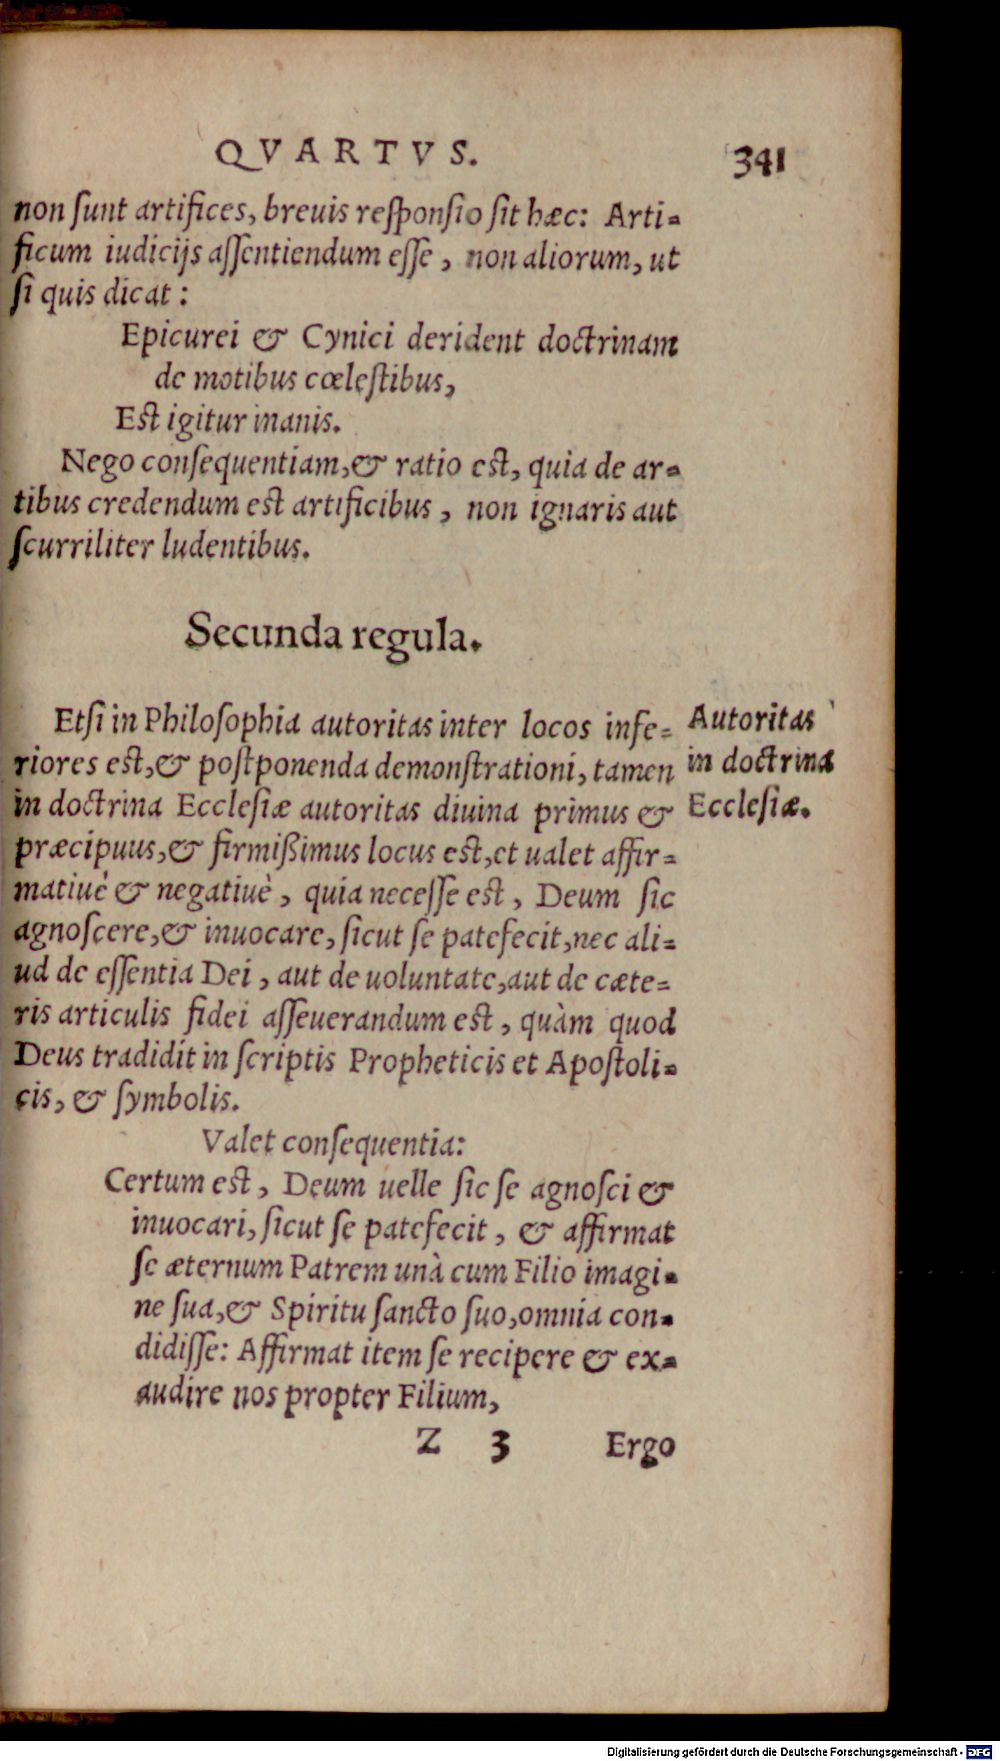 QVARTVS. 341
non ſunt artifices, breuis reſponſio ſit hæc: Arti-
ficum iudicijs aſſentiendum eſſe, non aliorum, ut
ſi quis dicat:
Epicurei & Cynici derident doctrinam
de motibus cœleſtibus,
Eſt igitur inanis.
Nego conſequentiam, & ratio eſt, quia de ar-
tibus credendum eſt artificibus, non ignaris aut
ſcurriliter ludentibus.
Secunda regula.
Etſi in Philoſophia autoritas inter locos infe-
riores eſt, & poſtponenda demonſtrationi, tamen
in doctrina Eccleſiæ autoritas diuina primus &
præcipuus, & firmißimus locus eſt, et ualet affir-
matiuè & negatiuè, quia neceſſe eſt, Deum ſic
agnoſcere, & inuocare, ſicut ſe patefecit, nec ali-
ud de eſſentia Dei, aut de uoluntate, aut de cæte-
ris articulis fidei aſſeuerandum eſt, quàm quod
Deus tradidit in ſcriptis Propheticis et Apoſtoli-
cis, & ſymbolis.
Autoritas
in doctrina
Eccleſiæ.
Valet conſequentia:
Certum eſt, Deum uelle ſic ſe agnoſci &
inuocari, ſicut ſe patefecit, & affirmat
ſe æternum Patrem unà cum Filio imagi-
ne ſua, & Spiritu ſancto ſuo, omnia con-
didiſſe: Affirmat item ſe recipere & ex-
audire nos propter Filium,
Z 3 Ergo
Digitalisierung gefördert durch die Deutsche Forschungsgemeinschaft - DFG